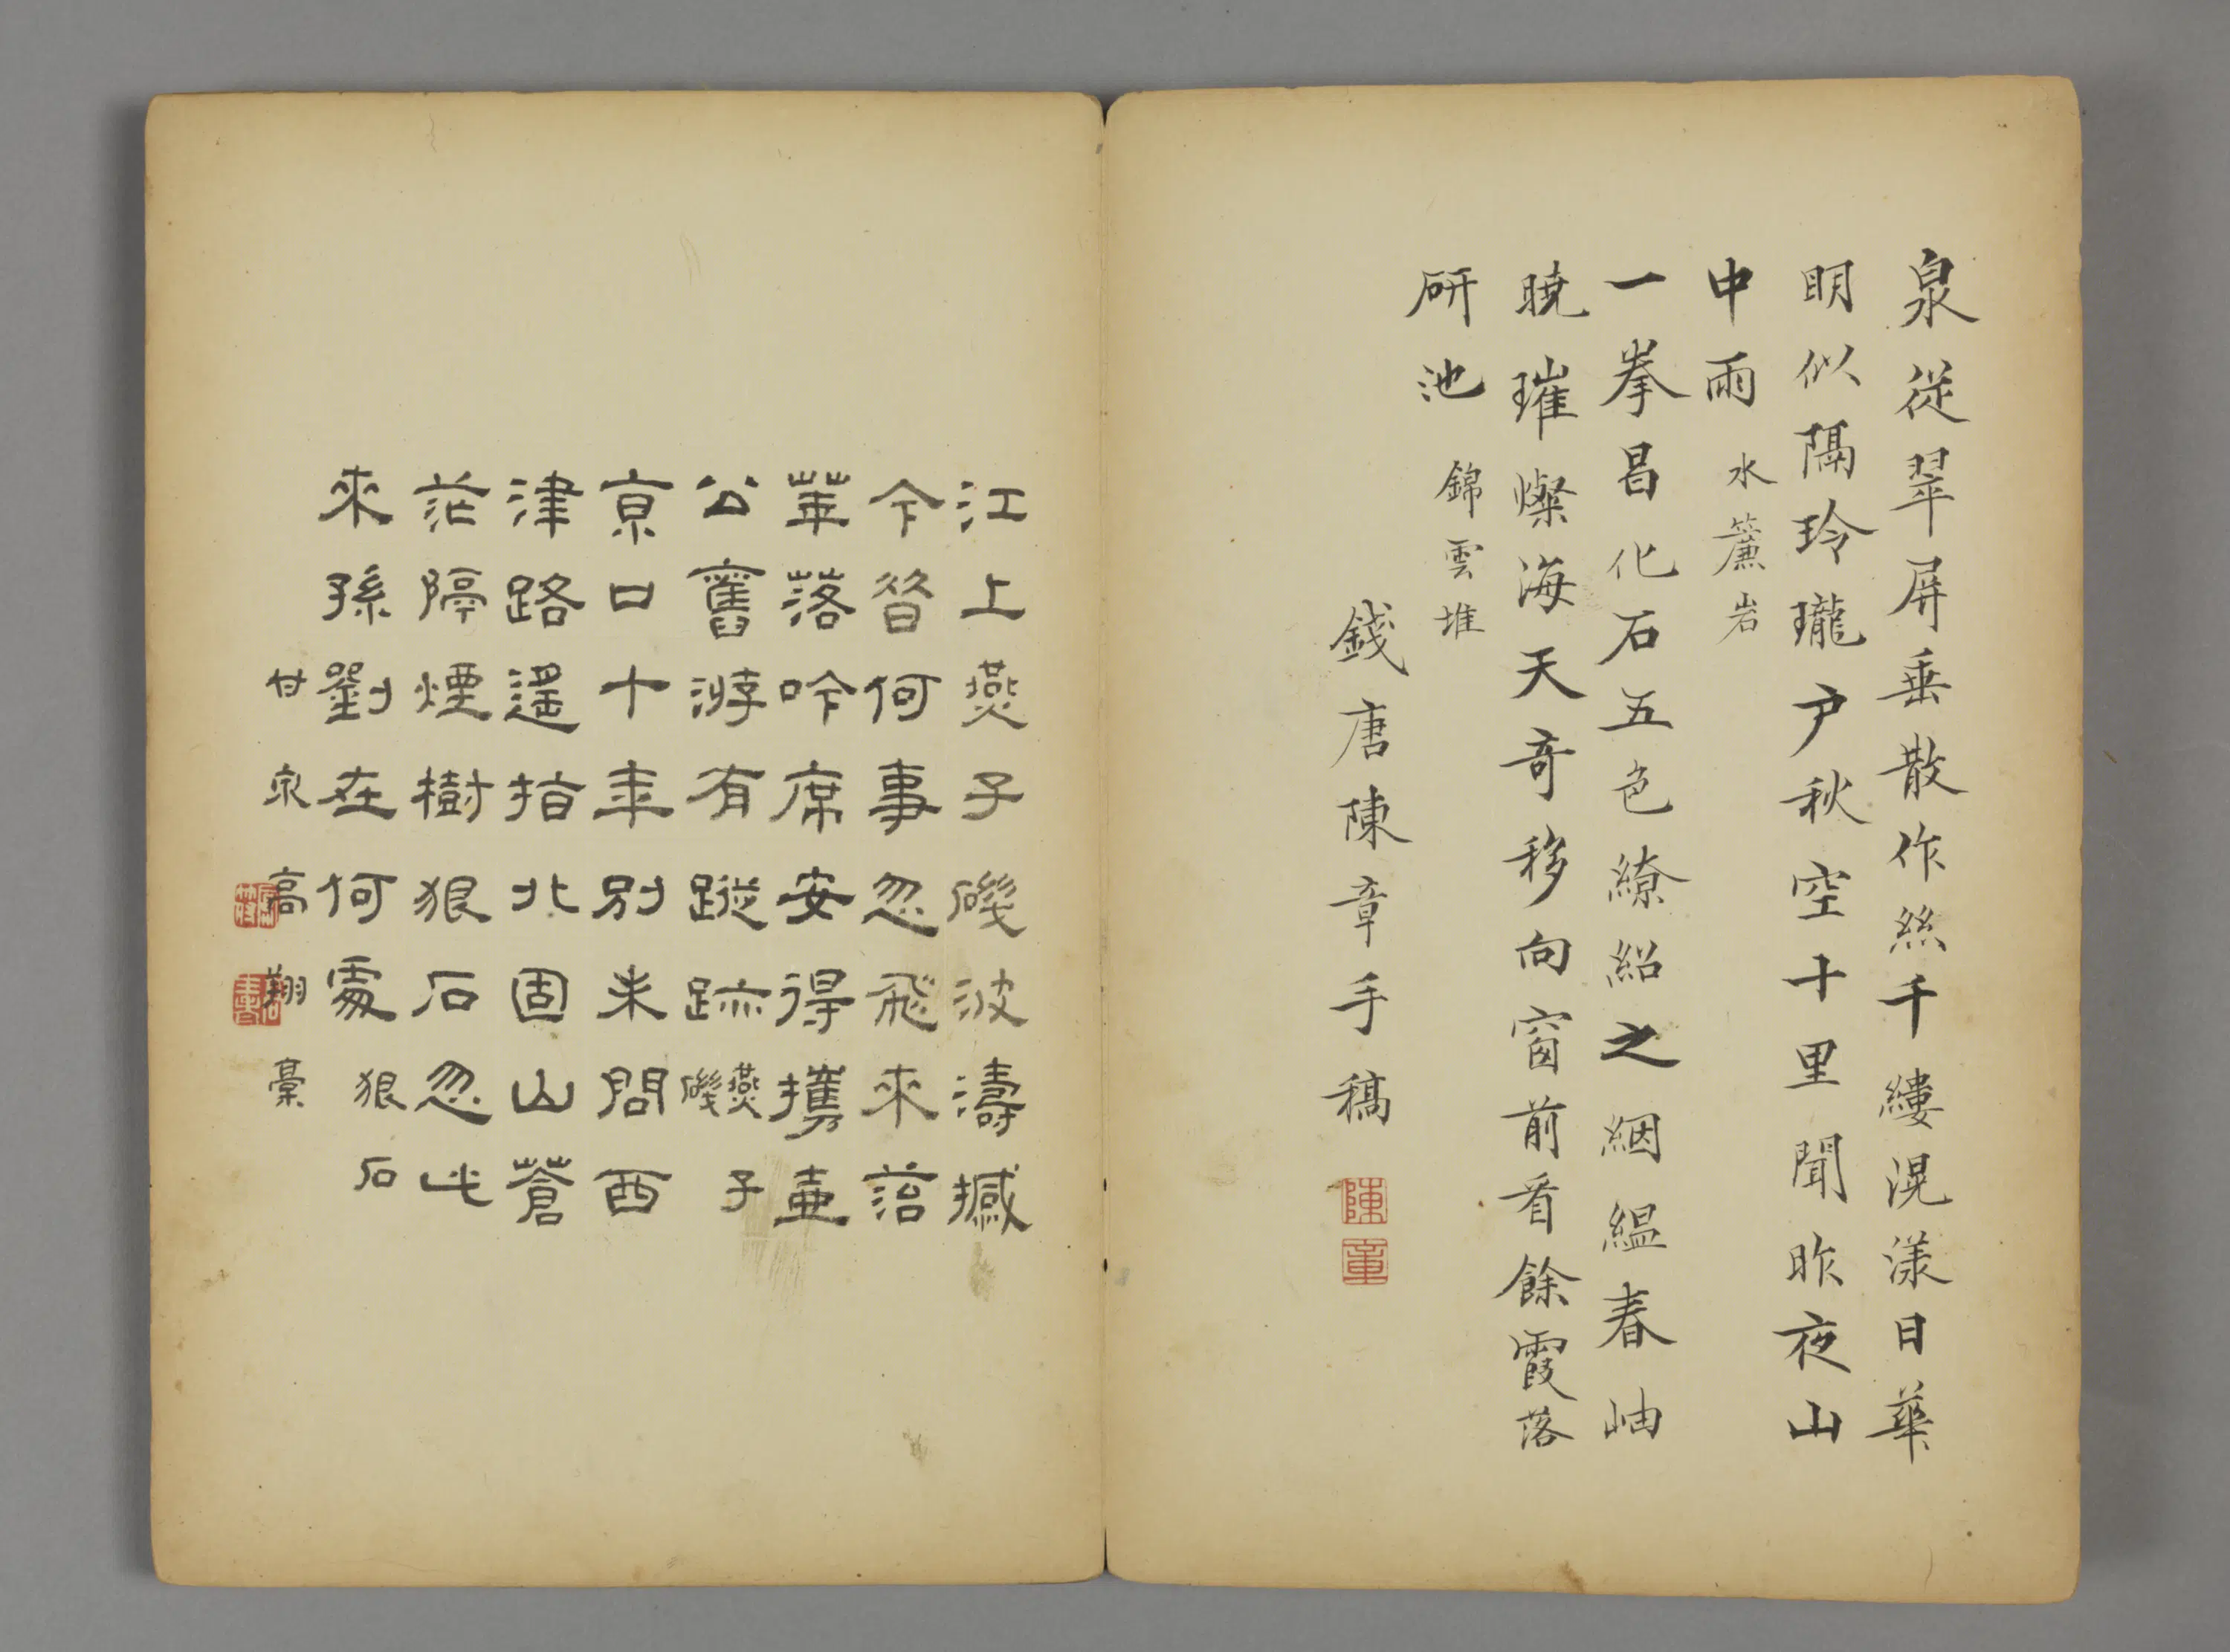 泉從翠屏垂散作絲千縷滉漾日華
明似隔玲瓏戶秋空十里聞昨夜山
中雨 水簾岩
一拳昌化石五色繚紹之絪縕春岫
曉璀燦海天奇移向窗前看餘霞落
研池 錦雲堆
錢唐陳章手稿
陳章
江上燕子磯波濤撼
今昔何事忽飛來菭
華落吟席安得攜壺
公舊游有蹤跡 燕子磯
京口十年別未問西
津路遙指北固山蒼
茫隔煙樹狠石忽此
來孫劉在何處 狠石
甘泉高翔稾